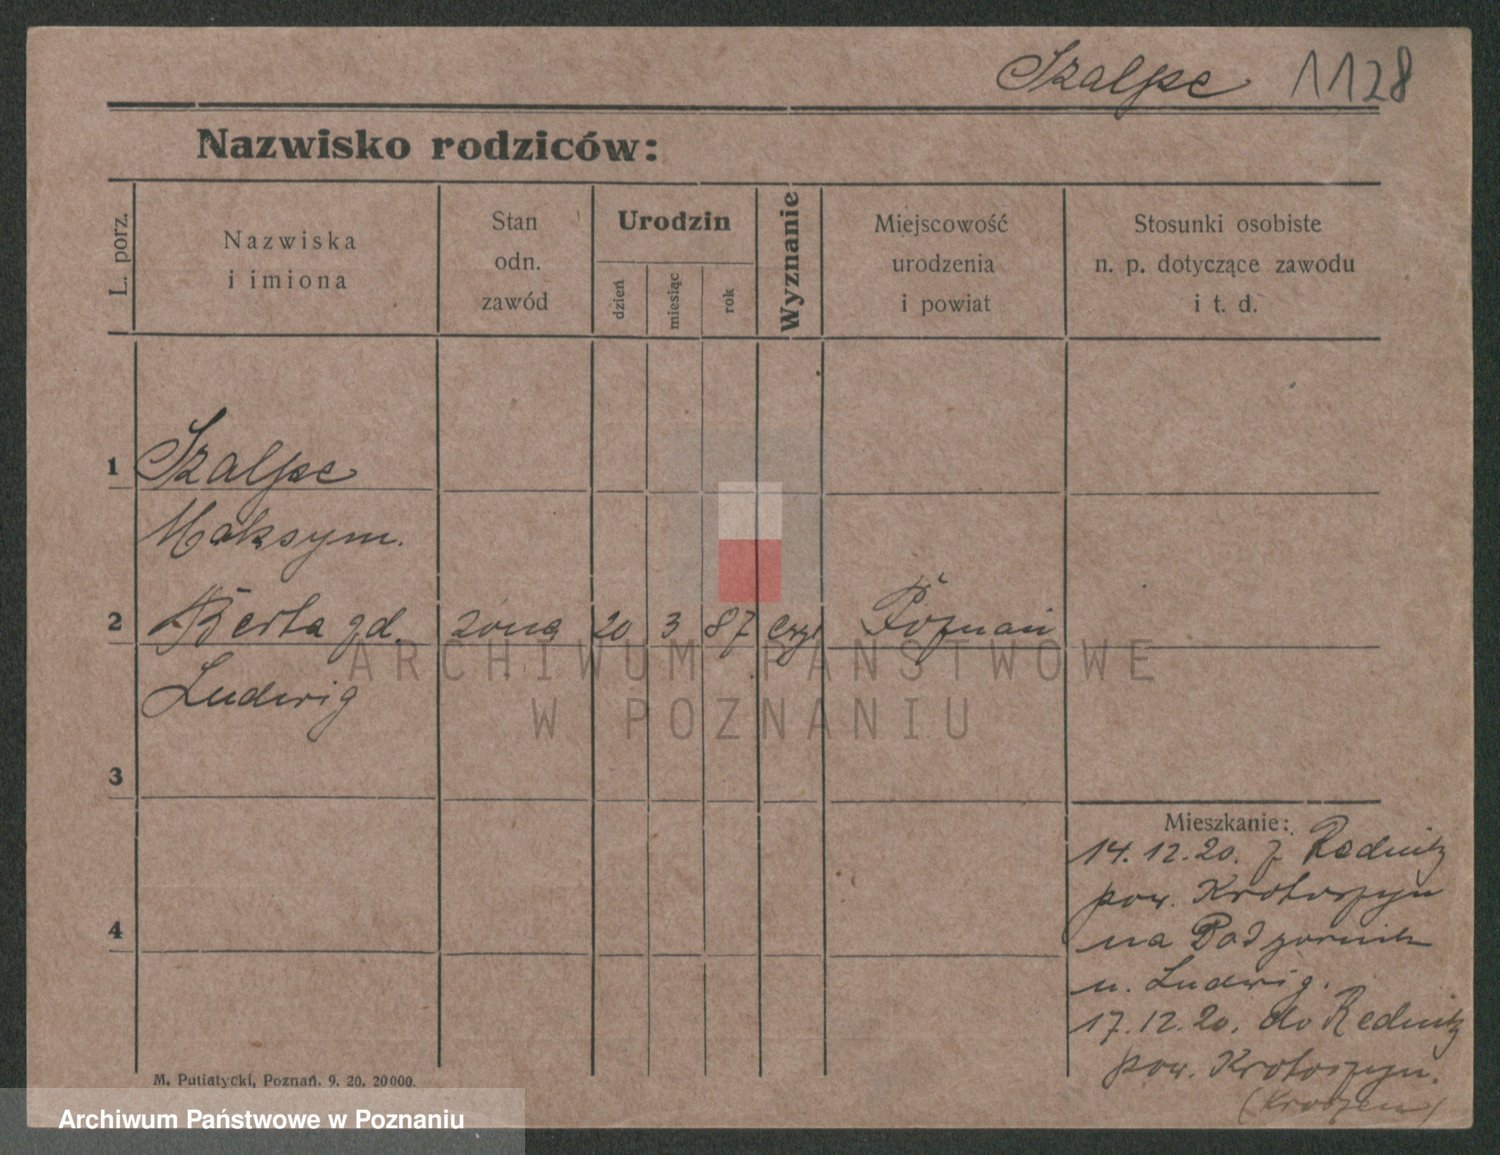 Szalpe 1128
Nazwisko rodziców:
L. porz.
Nazwiska
i imiona
Stan
odn.
zawód
Urodzin
dzień
miesiąc
rok
Wyznanie
Miejscowość
urodzenia
i powiat
Stosunki osobiste
n. p. dotyczące zawodu
i t. d.
1 Szalpe
Maksym.
2 Berta zd. żona 20 3 87 Poznań
Ludwig
3
4
Mieszkanie:
14.12.20. z Rednitz
pow. Krotoszyn
na
u. Ludwig.
17.12.20. do Rednitz
pow. Krotoszyn.
M. Putiatycki, Poznań. 9. 20. 20000.
ARCHIWUM PAŃSTWOWE
W POZNANIU
Archiwum Państwowe w Poznaniu